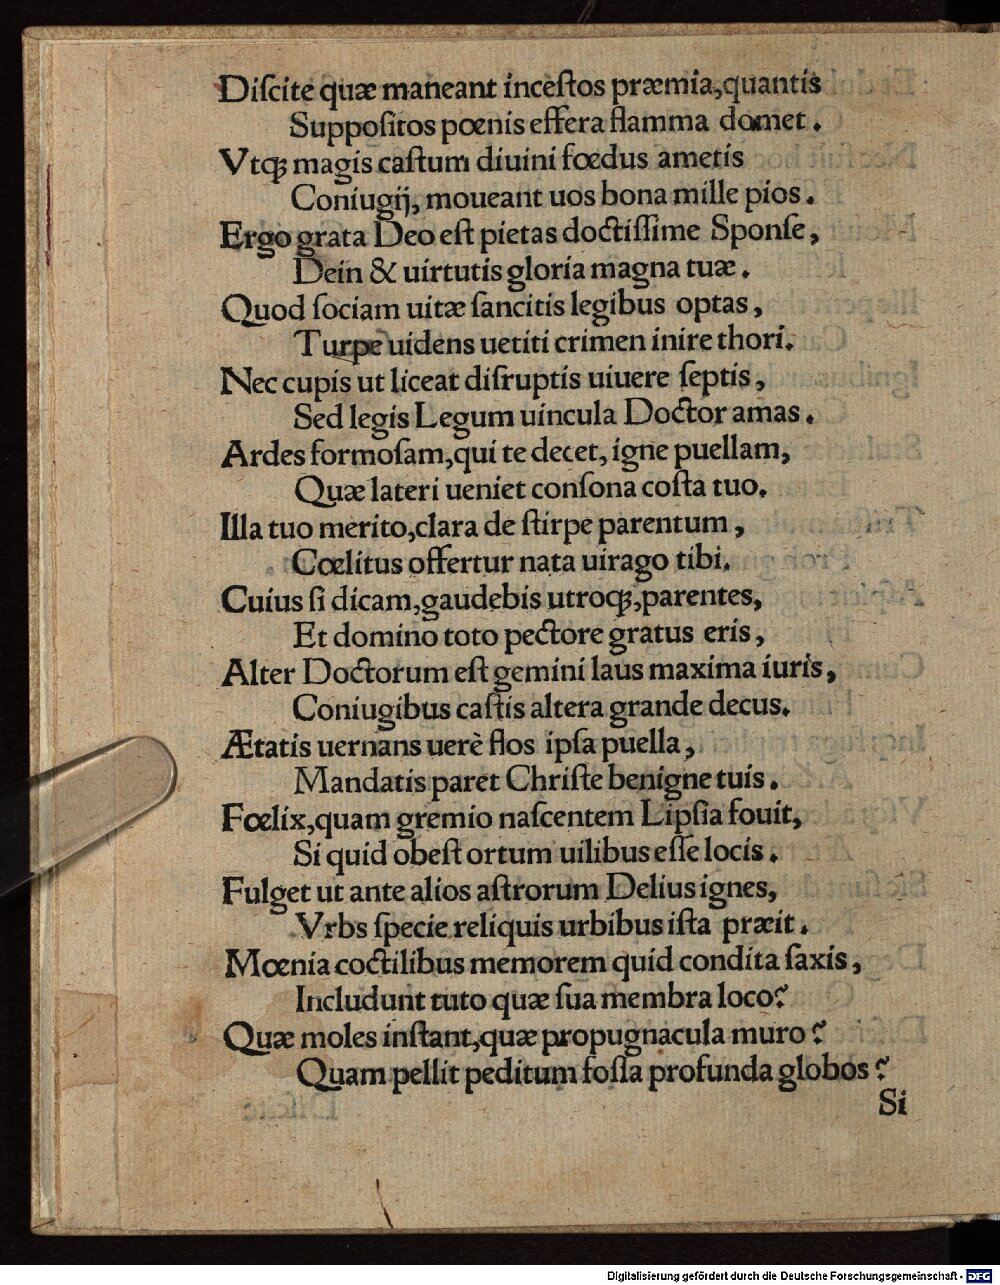 Diſcite quæ maneant inceſtos præmia,quantis
Suppoſitos pœnis effera flamma domet.
Vtq; magis caſtum diuini fœdus ametis
Coniugij, moueant uos bona mille pios.
Ergo grata Deo eſt pietas doctiſſime Sponſe,
Dein & uirtutis gloria magna tuæ.
Quod ſociam uitæ ſancitis legibus optas,
Turpe uidens uetiti crimen inire thori.
Nec cupis ut liceat diſruptis uiuere ſeptis,
Sed legis Legum uincula Doctor amas.
Ardes formoſam,qui te decet, igne puellam,
Quæ lateri ueniet conſona coſta tuo.
Illa tuo merito,clara de ſtirpe parentum,
Cœlitus offertur nata uirago tibi.
Cuius ſi dicam,gaudebis utroq;,parentes,
Et domino toto pectore gratus eris,
Alter Doctorum eſt gemini laus maxima iuris,
Coniugibus caſtis altera grande decus.
Ætatis uernans uerè flos ipſa puella,
Mandatis paret Chriſte benigne tuis.
Fœlix,quam gremio naſcentem Lipſia fouit,
Si quid obeſt ortum uilibus eſſe locis.
Fulget ut ante alios aſtrorum Delius ignes,
Vrbs ſpecie reliquis urbibus iſta præit.
Mœnia coctilibus memorem quid condita ſaxis,
Includunt tuto quæ ſua membra loco?
Quæ moles inſtant,quæ propugnacula muro?
Quam pellit peditum foſſa profunda globos?
Si
Digitalisierung gefördert durch die Deutsche Forschungsgemeinschaft - DFG